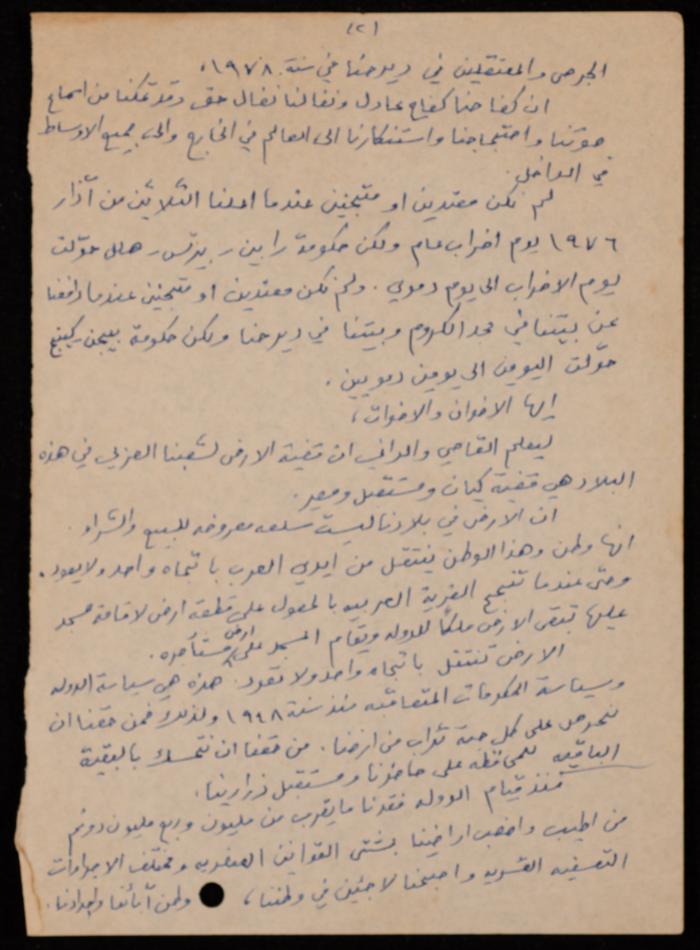 (٢)
الجرحى والمعتقلين في ديرحنا في سنة ١٩٧٨.
ان كفاحنا كفاح عادل ونضالنا نضال حق وقد تمكنا من اسماع
صوتنا واحتجاجنا واستنكارنا الى العالم في الخارج والى جميع الاوساط
في الداخل.
لم نكن معتدين او متجنين عندما اعلنا الثلاثين من آذار
١٩٧٦ يوم اضراب عام ولكن حكومة رابين - بيرتس - هلل حوّلت
يوم الاضراب الى يوم دموي. ولم نكن معتدين او متجنين عندما دافعنا
عن بيتنا في مجد الكروم وبيتنا في ديرحنا ولكن حكومة بيجن
حوّلت اليومين الى يومين دمويين.
ايها الاخوان والاخوات،
ليعلم القاصي والداني ان قضية الارض لشعبنا العربي في هذه
البلاد هي قضية كيان ومستقبل ومصير.
ان الارض في بلادنا ليست سلعه معروضه للبيع والشراء
انها وطن وهذا الوطن ينتقل من ايدي العرب باتجاه واحد ولا يعود.
وحتى عندما تنجح القرية العربيه بالحصول على قطعة ارض لاقامة مسجد
عليها تبقى الارض ملكاً للدوله ويقام المسجد على ارض مستأجره.
الارض تنتقل باتجاه واحد ولا تعود. هذه هي سياسة الدوله
وسياسة الحكومات المتعاقبه منذ سنة ١٩٤٨ ولذلك فمن حقنا ان
نحرص على كل حبة تراب من ارضنا. من حقنا ان نتمسك بالبقية
الباقيه للمحافظه على حاضرنا ومستقبل ذرارينا.
فمنذ قيام الدوله فقدنا ما يقرب من مليون وربع مليون دونم
من اطيب واخصب اراضينا بشتى القوانين العنصريه ومختلف الاجراءات
التعسفيه القسريه واصبحنا لاجئين في وطننا، وطن آبائنا واجدادنا.